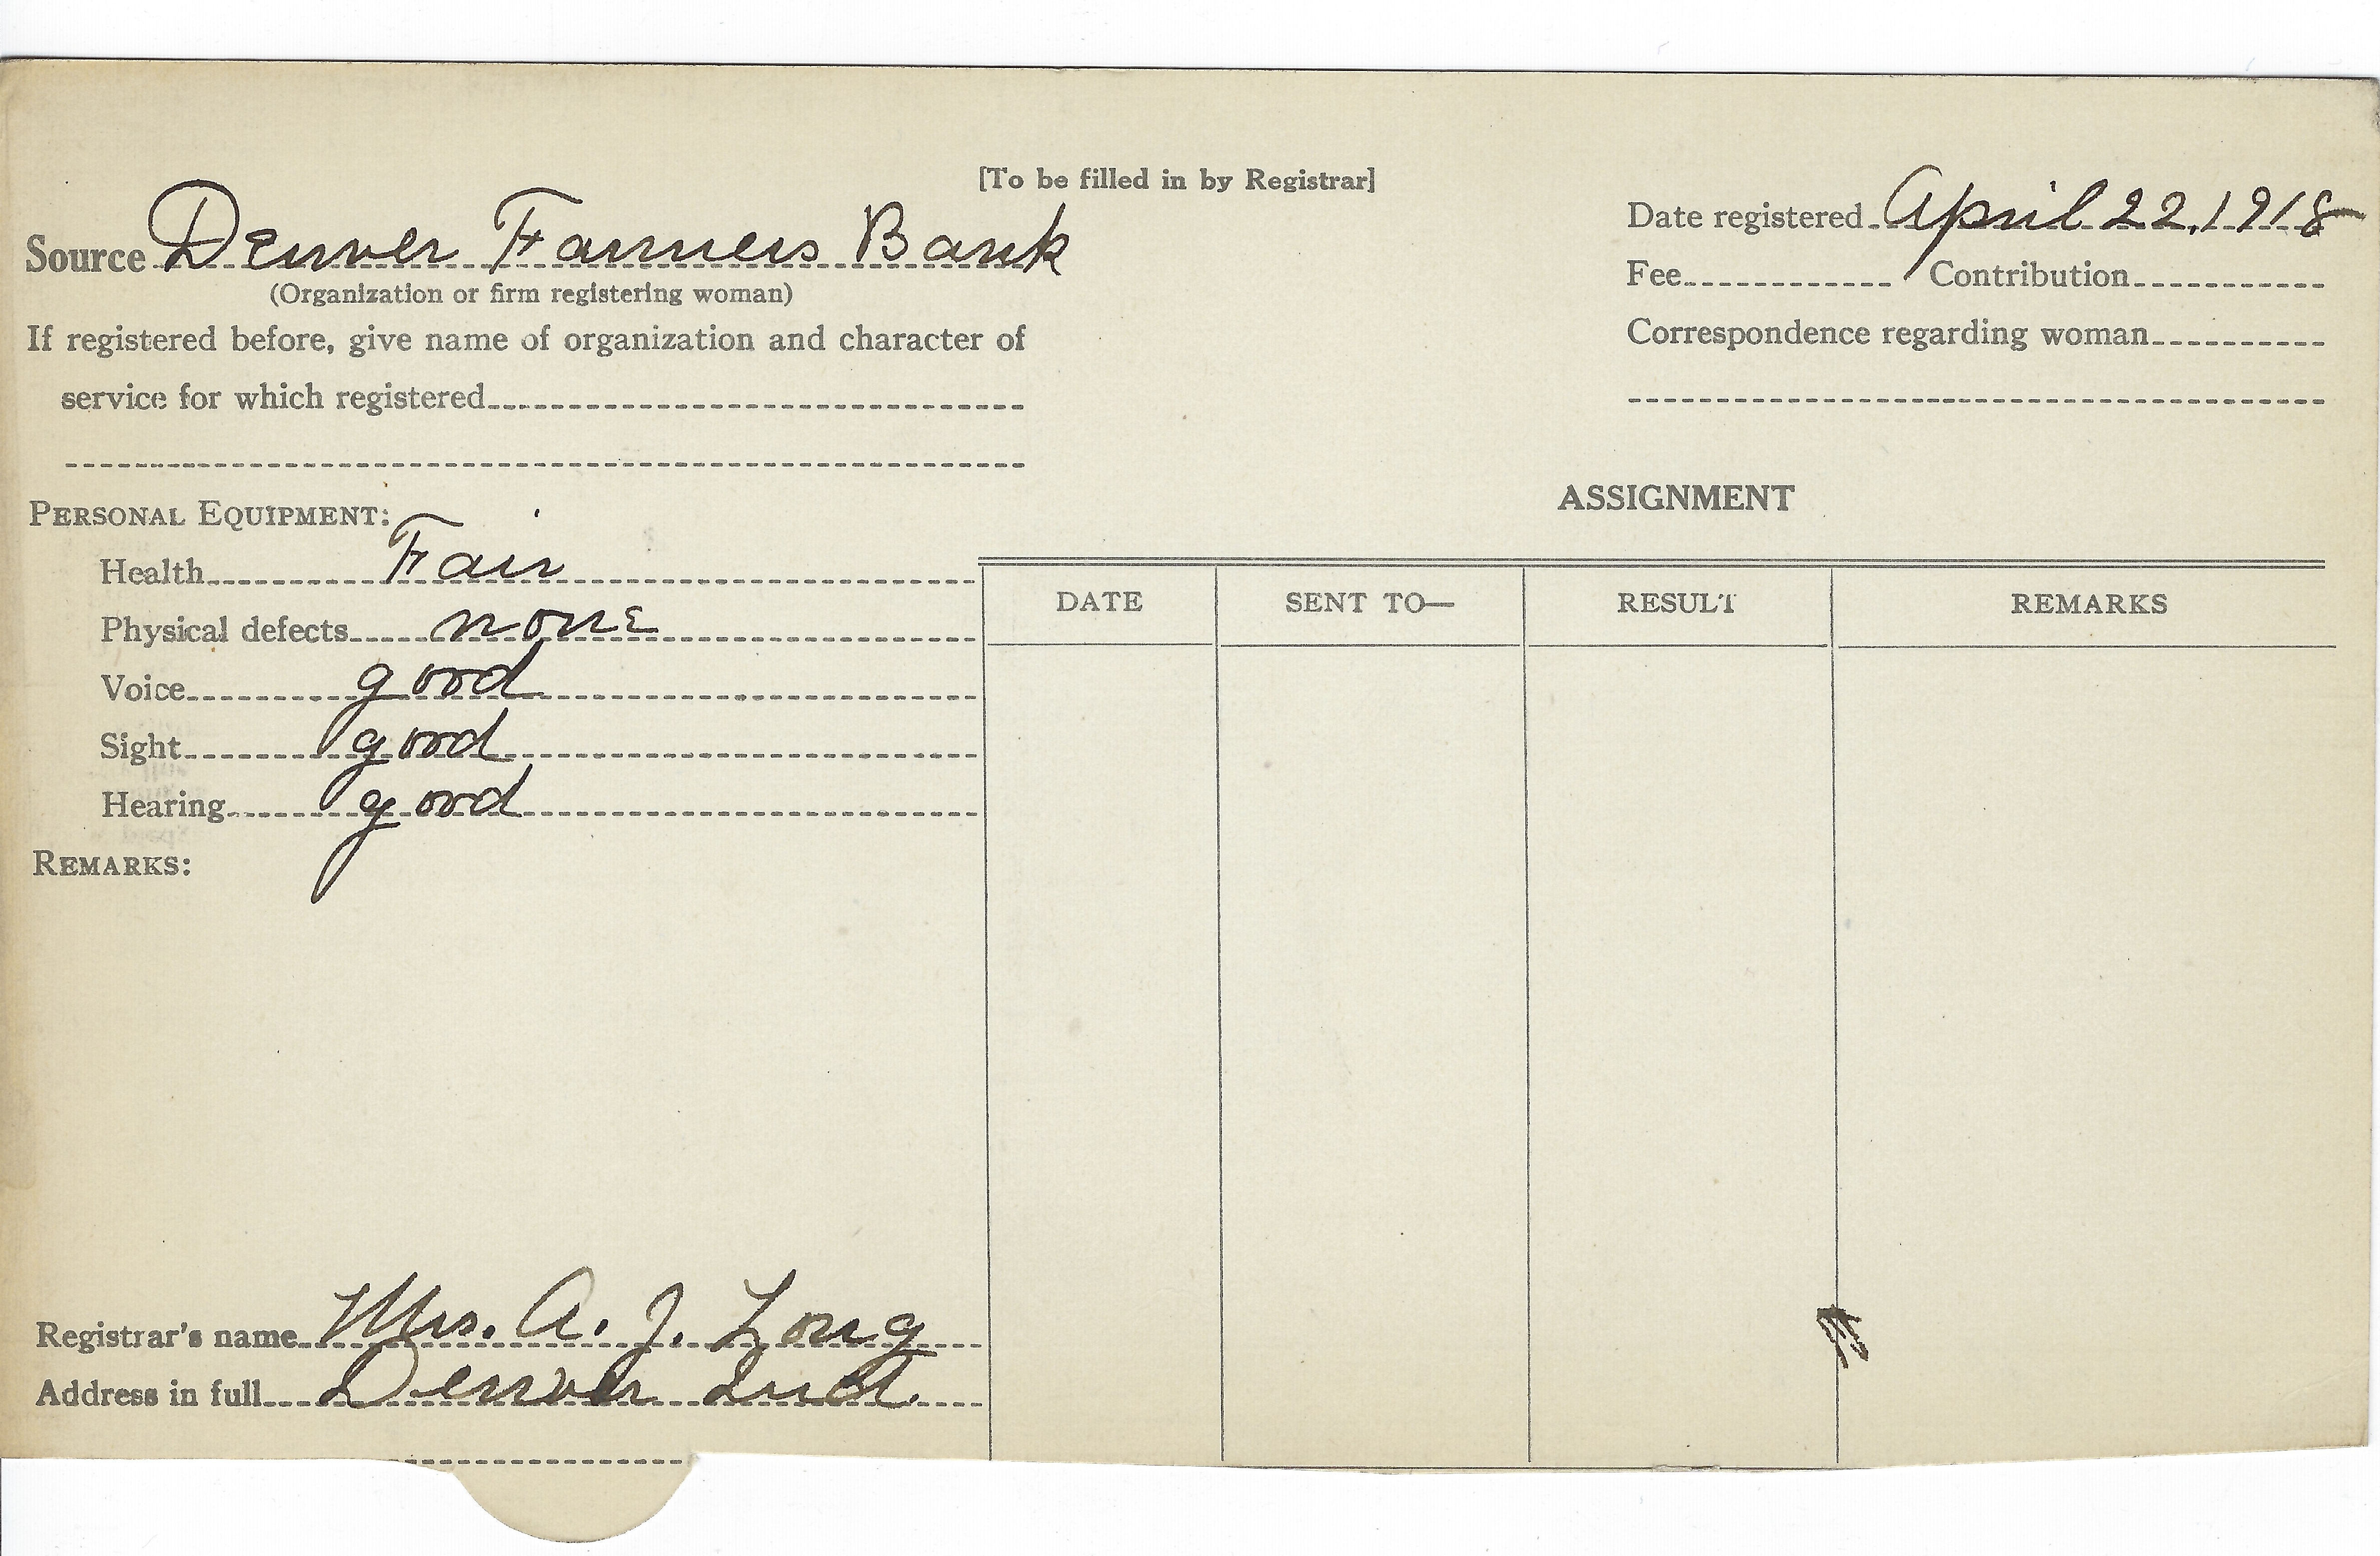 [To be filled in by Registrar]
Source Denver Farmers Bank
(Organization or firm registering woman)
If registered before, give name of organization and character of
service for which registered
Date registered April 22, 1918
Fee Contribution
Correspondence regarding woman
PERSONAL EQUIPMENT:
Health Fair
Physical defects none
Voice good
Sight good
Hearing good
REMARKS:
ASSIGNMENT
DATE SENT TO— RESULT REMARKS
Registrar's name Mrs. A. J. Long
Address in full Denver Ind.